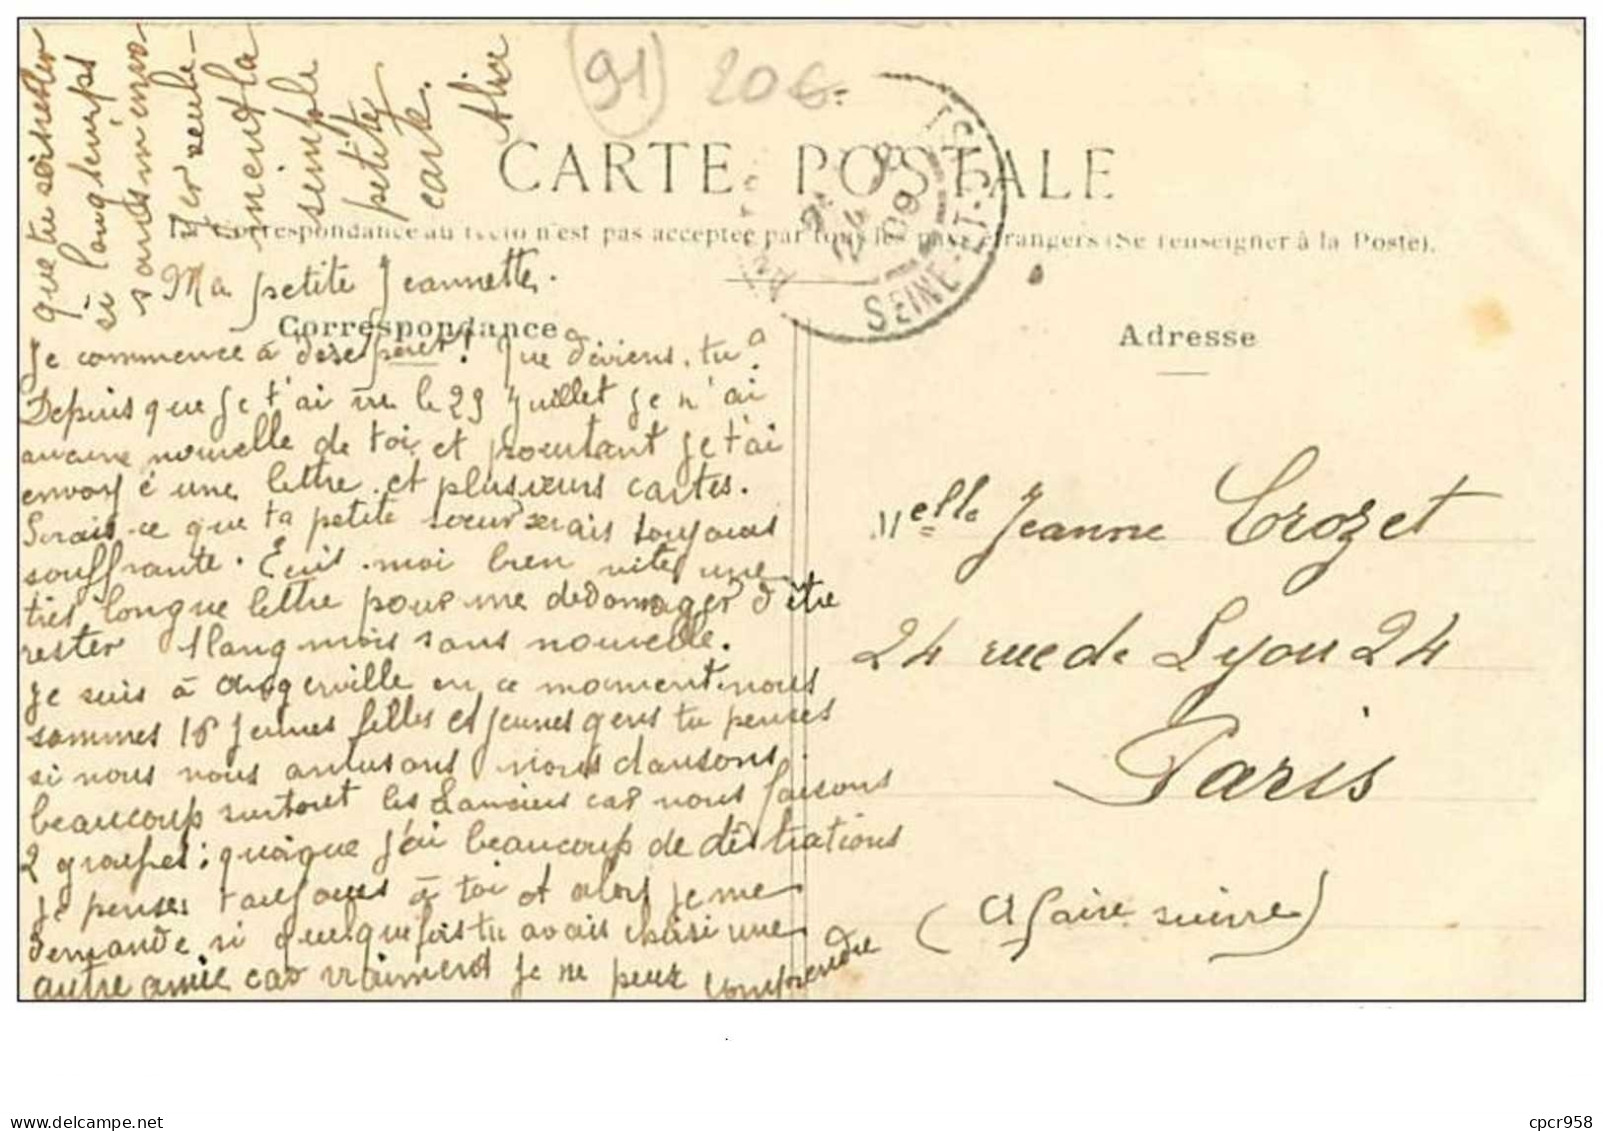 (91) 20€
CARTE POSTALE
La Correspondance au recto n'est pas acceptée par tous les pays étrangers (Se renseigner à la Poste).
SEINE-ET-OISE
24
8
09
Correspondance
Adresse
Ma petite Jeannette.
Je commence à désespérer! Que deviens-tu?
Depuis que je t'ai vu le 29 Juillet je n'ai
aucune nouvelle de toi et pourtant je t'ai
envoyé une lettre et plusieurs cartes.
Serais-ce que ta petite sœur serais toujours
souffrante. Ecris-moi bien vite une
très longue lettre pour me dedomager d'être
rester 1 lang mois sans nouvelle.
Je suis à Angerville en ce moment. nous
sommes 16 jeunes filles et jeunes gens tu penses
si nous nous amusons nous dansons
beaucoup surtout les Lanciers car nous faisons
2 groupes; quoique j'ai beaucoup de distrations
je penses toujours à toi et alors je me
demande si quelquefois tu avais choisi une
autre amie car vraiment je ne peux comprendre
que tu sois rester
si longtemps
sans m'envo-
yer seule-
ment la
simple
petite
carte.
Alice
Melle Jeanne Crozet
24 rue de Lyon 24
Paris
(A faire suivre)
www.delcampe.net
cpcr958